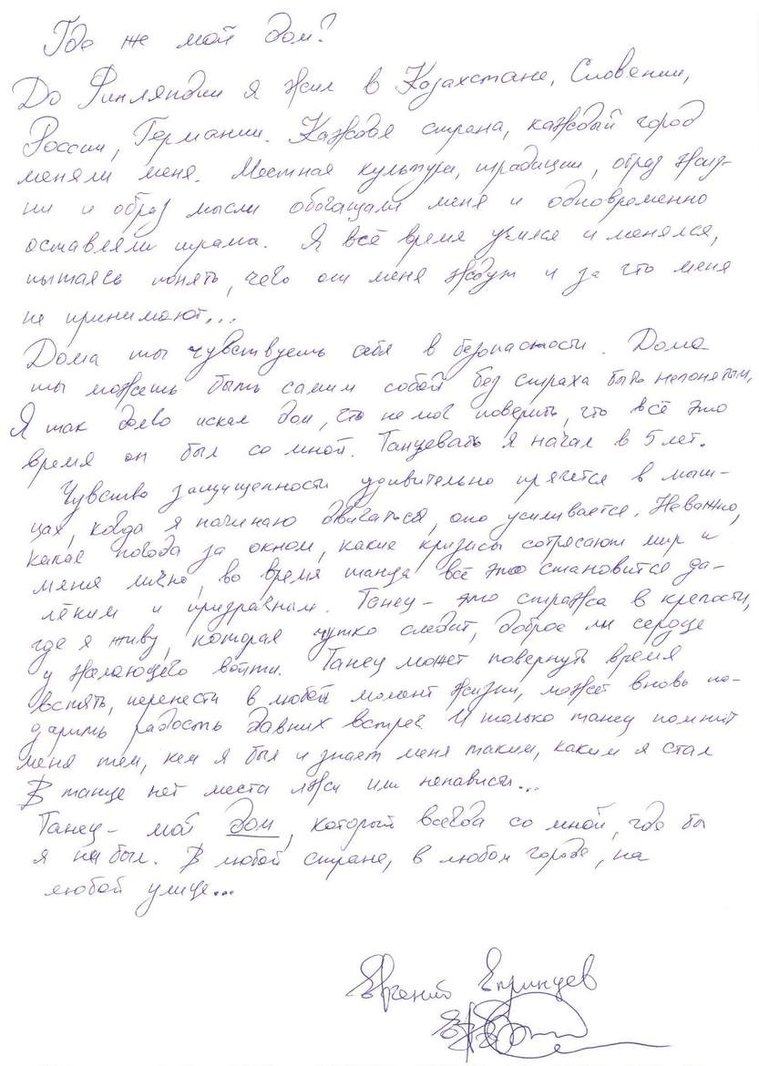 Где же мой дом?
До Финляндии я жил в Казахстане, Словении,
России, Германии. Каждая страна, каждый город
меняли меня. Местная культура, традиции, образ жиз-
ни и образ мысли обогащали меня и одновременно
оставляли шрамы. Я всё время учился и менялся,
пытаясь понять, чего от меня ждут и за что меня
не принимают...
Дома ты чувствуешь себя в безопасности. Дома
ты можешь быть самим собой без страха быть непонятым.
Я так долго искал дом, что не мог поверить, что всё это
время он был со мной. Танцевать я начал в 5 лет.
Чувство защищенности удивительно прячется в мыш-
цах, когда я начинаю двигаться, оно усиливается. Неважно,
какая погода за окном, какие кризисы сотрясают мир и
меня лично, во время танца всё это становится да-
лёким и призрачным. Танец - это стража в крепости,
где я живу, которая чутко следит, доброе ли сердце
у желающего войти. Танец может повернуть время
вспять, перенести в любой момент жизни, может вновь по-
дарить радость давних встреч. И только танец помнит
меня тем, кем я был и знает меня таким, каким я стал
В танце нет места лжи или ненависти...
Танец - мой дом, который всегда со мной, где бы
я не был. В любой стране, в любом городе, на
любой улице...
Евгений